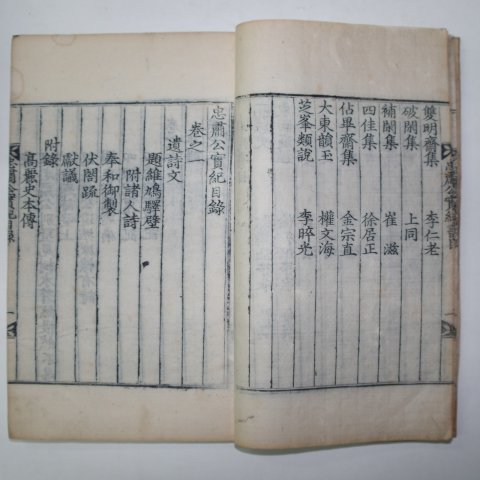 雙明齋集 李仁老
破閑集 上同
補閑集 崔滋
四佳集 徐居正
佔畢齋集 金宗直
大東韻玉 權文海
芝峯類說 李睟光
忠肅公實紀目錄
卷之一
遺詩文
題維鳩驛壁
附諸人詩
奉和御製
伏閤疏
獻議
附錄
高麗史本傳